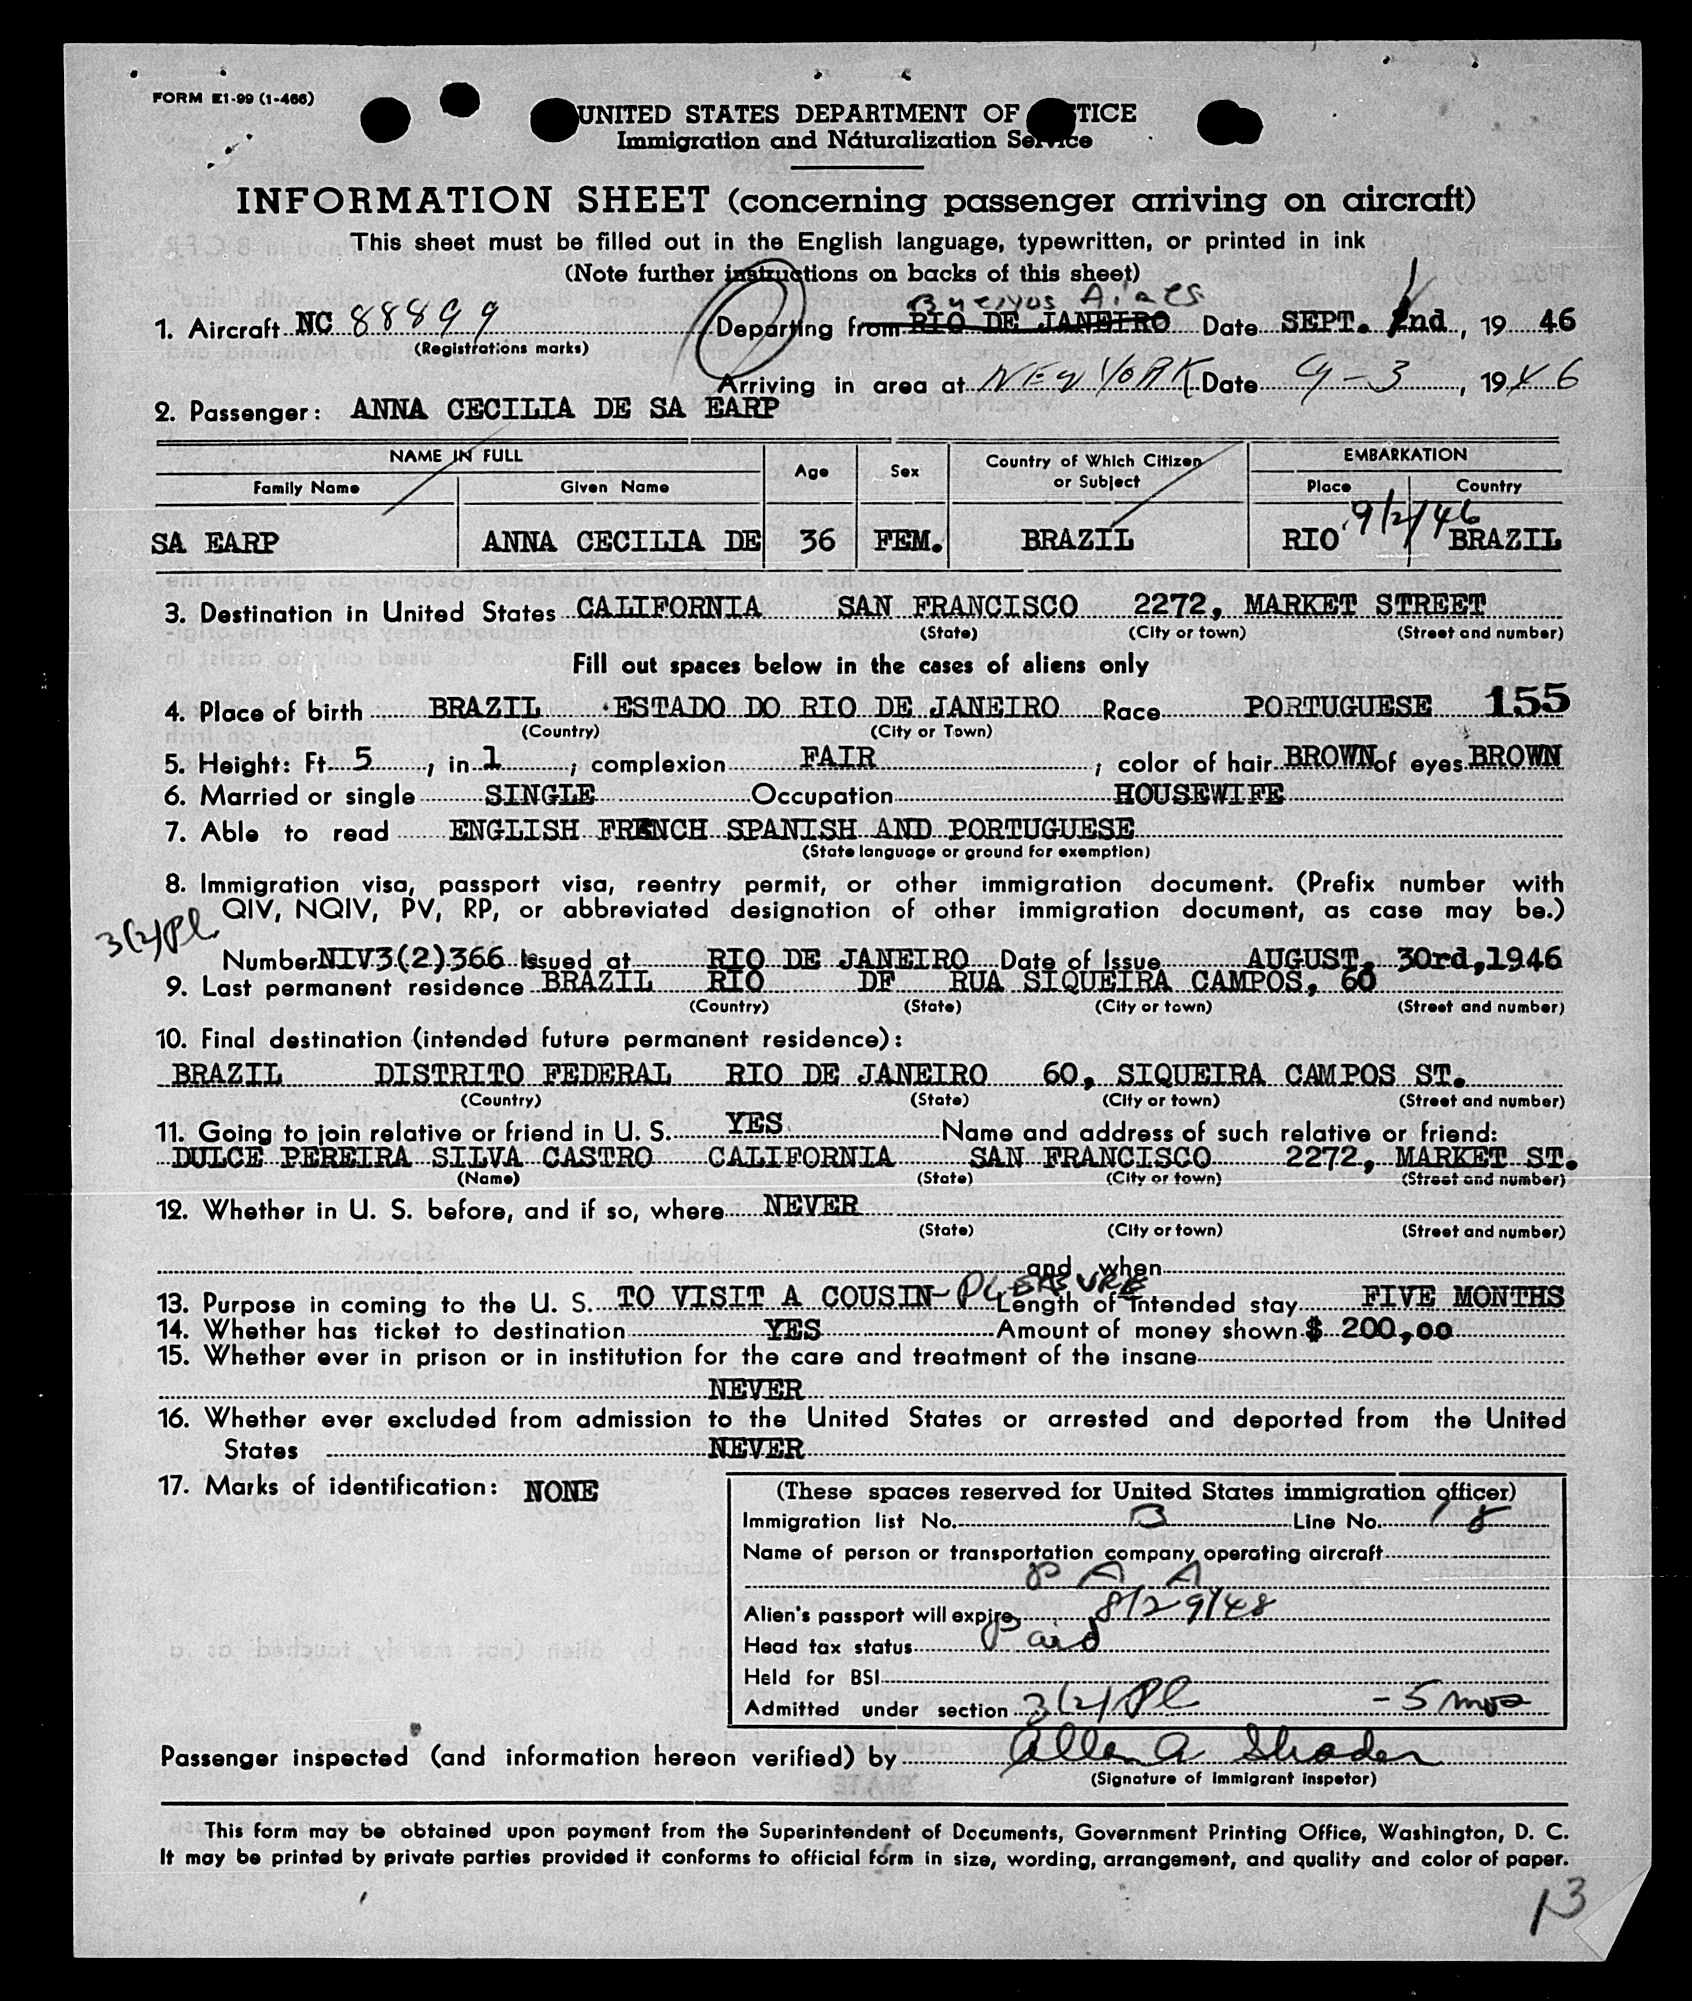 FORM E1-99 (1-466)
UNITED STATES DEPARTMENT OF TICE
Immigration and Naturalization Service
INFORMATION SHEET (concerning passenger arriving on aircraft)
This sheet must be filled out in the English language, typewritten, or printed in ink
(Note further instructions on backs of this sheet)
Buenos Aires
1. Aircraft NC 88899 Departing from RIO DE JANEIRO Date SEPT. nd, 19 46
(Registrations marks)
Arriving in area at NEW YORK Date 9-3, 1946
2. Passenger: ANNA CECILIA DE SA EARP
NAME IN FULL Age Sex Country of Which Citizen or Subject EMBARKATION
Family Name Given Name Place Country
9/2/46
SA EARP ANNA CECILIA DE 36 FEM. BRAZIL RIO BRAZIL
3. Destination in United States CALIFORNIA SAN FRANCISCO 2272, MARKET STREET
(State) (City or town) (Street and number)
Fill out spaces below in the cases of aliens only
4. Place of birth BRAZIL ESTADO DO RIO DE JANEIRO Race PORTUGUESE 155
(Country) (City or Town)
5. Height: Ft. 5, in. 1; complexion FAIR; color of hair BROWN of eyes BROWN
6. Married or single SINGLE Occupation HOUSEWIFE
7. Able to read ENGLISH FRENCH SPANISH AND PORTUGUESE
(State language or ground for exemption)
8. Immigration visa, passport visa, reentry permit, or other immigration document. (Prefix number with
QIV, NQIV, PV, RP, or abbreviated designation of other immigration document, as case may be.)
3(2)Pl
Number NIV3(2)366 Issued at RIO DE JANEIRO Date of Issue AUGUST, 30rd,1946
9. Last permanent residence BRAZIL RIO DF RUA SIQUEIRA CAMPOS, 60
(Country) (State) (City or town) (Street and number)
10. Final destination (intended future permanent residence):
BRAZIL DISTRITO FEDERAL RIO DE JANEIRO 60, SIQUEIRA CAMPOS ST.
(Country) (State) (City or town) (Street and number)
11. Going to join relative or friend in U. S. YES Name and address of such relative or friend:
DULCE PEREIRA SILVA CASTRO CALIFORNIA SAN FRANCISCO 2272, MARKET ST.
(Name) (State) (City or town) (Street and number)
12. Whether in U. S. before, and if so, where NEVER
(State) (City or town) (Street and number)
and when
13. Purpose in coming to the U. S. TO VISIT A COUSIN- PLEASURE Length of intended stay FIVE MONTHS
14. Whether has ticket to destination YES Amount of money shown $ 200,00
15. Whether ever in prison or in institution for the care and treatment of the insane
NEVER
16. Whether ever excluded from admission to the United States or arrested and deported from the United
States NEVER
17. Marks of identification: NONE
(These spaces reserved for United States immigration officer)
Immigration list No. B Line No. 18
Name of person or transportation company operating aircraft
P A A
Alien's passport will expire 8/29/48
Head tax status Paid
Held for BSI
Admitted under section 3(2)Pl - 5 mos
Passenger inspected (and information hereon verified) by Allen A Shader
(Signature of immigrant inspetor)
This form may be obtained upon payment from the Superintendent of Documents, Government Printing Office, Washington, D. C.
It may be printed by private parties provided it conforms to official form in size, wording, arrangement, and quality and color of paper.
13